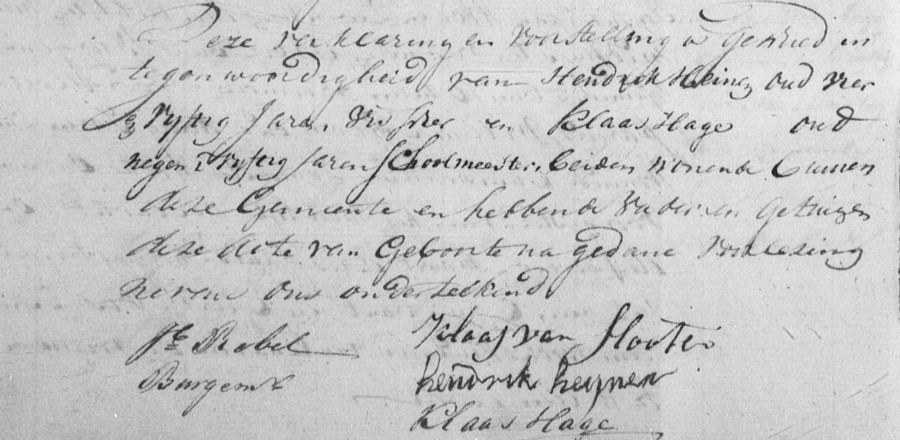 Deze verklaring en voorstelling is geschied in
tegenwoordigheid van Hendrik Heinen oud vier
en vyftig Jaren, Visscher en Klaas Hage oud
negen & vyftig Jaren Schoolmeester, beiden wonende binnen
deze Gemeente en hebbende Vader en getuigen
deze Acte van Geboorte na gedane voorlezing
nevens ons onderteekend
Klaas van Slooten
Burgemr
hendrik heijnen
Klaas Hage